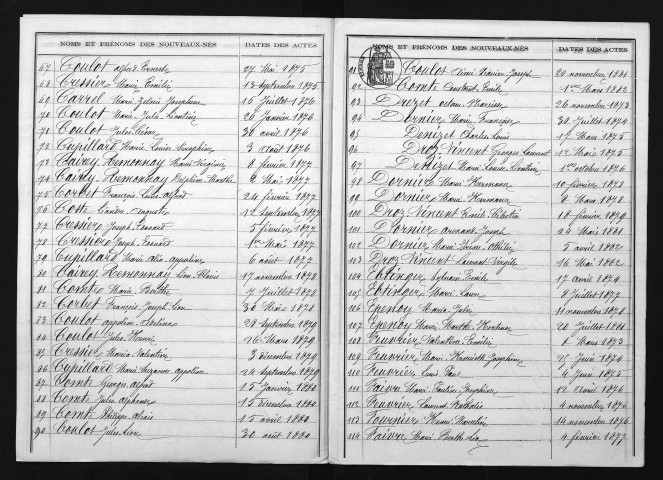 NOMS ET PRÉNOMS DES NOUVEAUX-NÉS DATES DES ACTES
67 Coulot Alfred Ernest 27 Mai 1875
68 Cressier Marie Emilie 13 Septembre 1875
69 Carrel Marie Joséphine 15 Juillet 1876
70 Coulot Marie Julie Léontine 28 Janvier 1876
71 Coulot Jules César 30 avril 1876
72 Cupillard Marie Louise Séraphine 3 août 1876
73 Cairey Remonnay Marie Virginie 8 février 1877
74 Cairey Remonnay Delphine Marthe 2 Mai 1877
75 Corbet François Louis Alfred 24 février 1877
76 Coste 12 Septembre 1877
77 Cressier Joseph 5 février 1877
78 Cressier Joseph 1er Mai 1877
79 Cupillard Marie Alix Appoline 6 août 1877
80 Cairey Remonnay Léon 17 novembre 1878
81 Comte Marie Berthe 7 Juillet 1878
82 Corbet François Joseph Léon 30 Mai 1878
83 Coulot 28 Septembre 1879
84 Coulot Jules Henri 26 Mars 1879
85 Cressier Marie Valentine 3 décembre 1879
86 Cupillard Marie Suzanne Appoline 24 Septembre 1879
87 Comte Georges Alfred 15 Janvier 1880
88 Comte Jules Alphonse 15 décembre 1880
89 Comte Philippe Alexis 15 avril 1880
90 Coulot Jules Léon 30 août 1880
NOMS ET PRÉNOMS DES NOUVEAUX-NÉS DATES DES ACTES
91 Coulot Joseph 20 novembre 1881
92 Comte Constant Emile 1er Mars 1882
93 Drezet 26 novembre 1873
94 Dornier Marie Françoise 30 Juillet 1874
95 Denizet Charles Louis 1er Mars 1875
96 Droz Vincent Georges Laurent 12 Mai 1875
97 Denizet Marie Louise 1er octobre 1876
98 Dornier Marie 10 février 1878
99 Dornier Marie 8 Mars 1878
100 Droz Vincent Emile 18 février 1879
101 Dornier Armand Joseph 24 Mai 1881
102 Dornier Marie 5 avril 1882
103 Droz Vincent Laurent Virgile 16 Mai 1882
104 Ebtinger Sylvain Emile 17 avril 1874
105 Ebtinger Marie 8 Juillet 1877
106 Epenoy Marie Julie 11 novembre 1878
107 Epenoy Marie Marthe 20 Juillet 1881
108 Feuvrier Valentine 8 Mars 1873
109 Feuvrier Marie Henriette Joséphine 25 Juin 1874
110 Feuvrier Louis Paul 4 Juin 1875
111 Faivre Marie Pauline Joséphine 12 avril 1876
112 Feuvrier Laurent 4 novembre 1876
113 Fournier Henri Marcelin 14 novembre 1876
114 Faivre Marie Berthe 4 février 1877